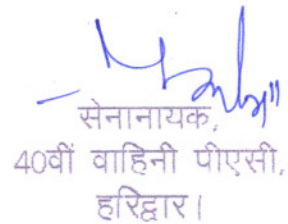 सेनानायक,
40वीं वाहिनी पीएसी,
हरिद्वार।